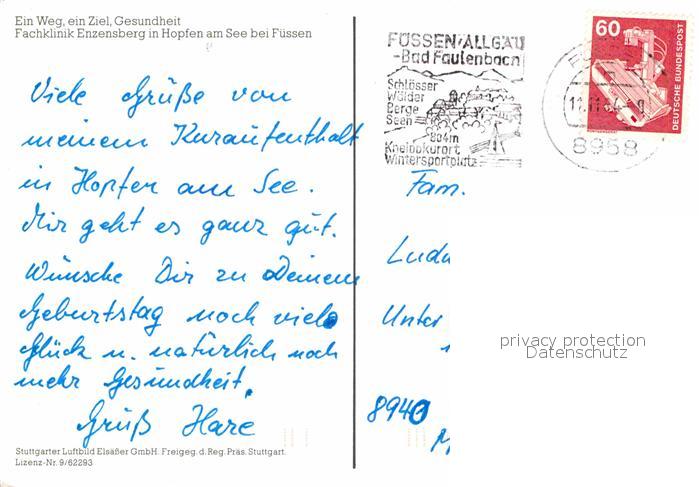 Ein Weg, ein Ziel, Gesundheit
Fachklinik Enzensberg in Hopfen am See bei Füssen
Viele Grüße von
meinem Kuraufenthalt
in Hopfen am See.
Mir geht es ganz gut.
Wünsche Dir zu Deinem
Geburtstag noch viel
Glück u. natürlich noch
mehr Gesundheit.
Gruß Hare
Stuttgarter Luftbild Elsäßer GmbH. Freigeg. d. Reg. Präs. Stuttgart.
Lizenz-Nr. 9/62293
FÜSSEN/ALLGÄU
-Bad Faulenbach
Schlösser
Wälder
Berge
Seen
804m
Kneippkurort
Wintersportplatz
8958
60
DEUTSCHE BUNDESPOST
Fam.
Ludu
Unter
8940
privacy protection
Datenschutz